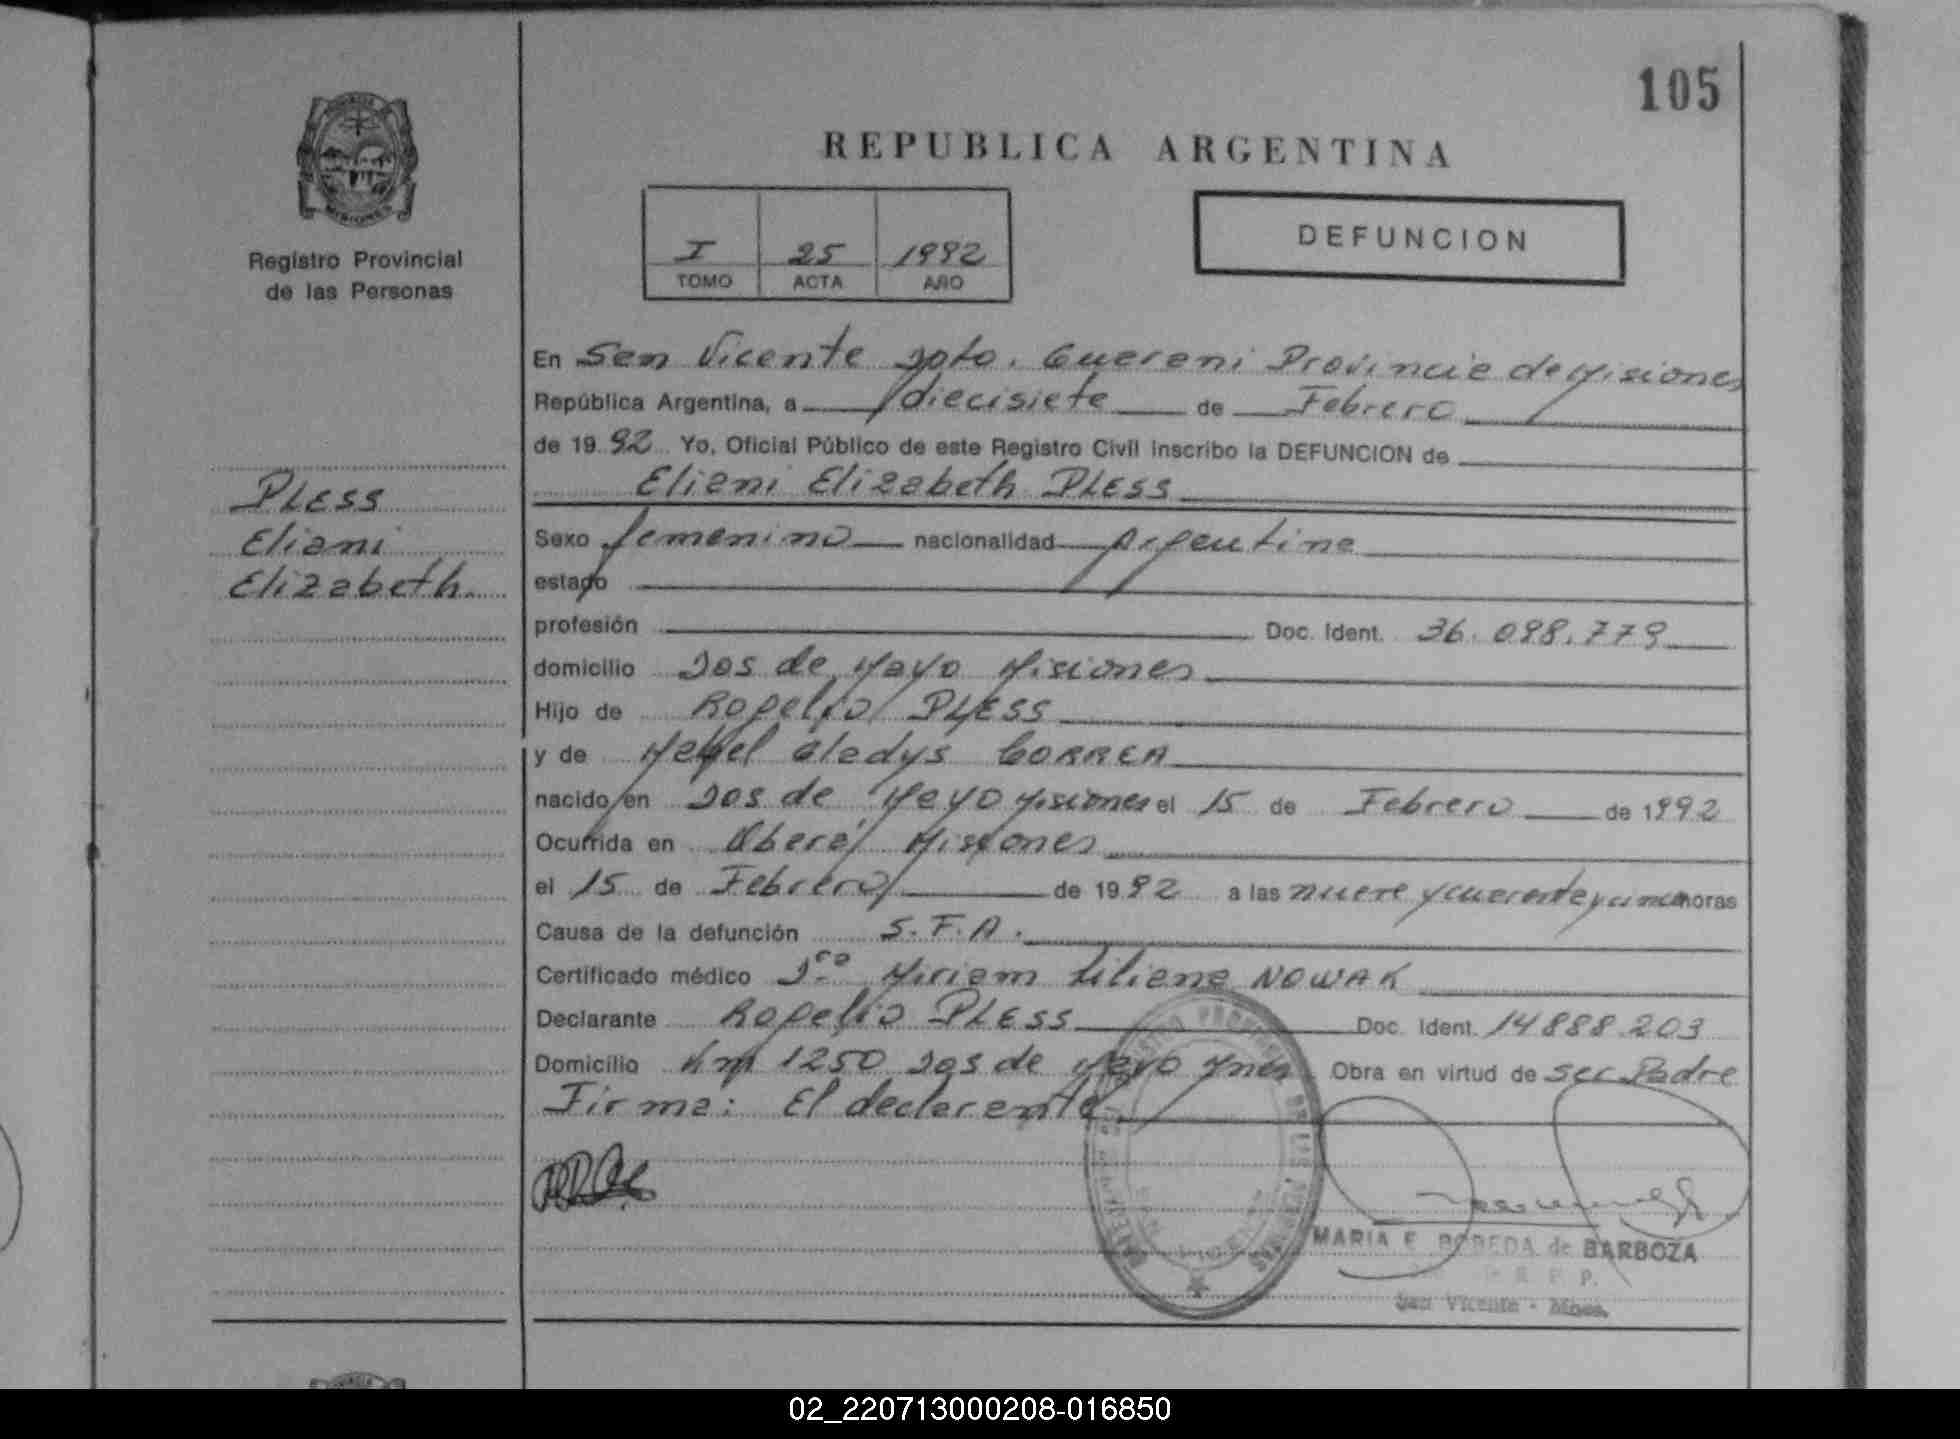 105
REPUBLICA ARGENTINA
MISIONES
Registro Provincial
de las Personas
I 25 1992
TOMO ACTA AÑO
DEFUNCION
PLESS
Eliani
Elizabeth.
En San Vicente Dpto. Guarani Provincia de Misiones
República Argentina, a diecisiete de Febrero
de 1992 Yo, Oficial Público de este Registro Civil inscribo la DEFUNCION de
Eliani Elizabeth PLESS
Sexo femenino nacionalidad Argentina
estado
profesión Doc. Ident. 36.098.779
domicilio Dos de Mayo Misiones
Hijo de Rogelio PLESS
y de Mabel Gladys CORREA
nacido en Dos de Mayo Misiones el 15 de Febrero de 1992
Ocurrida en Oberá Misiones
el 15 de Febrero de 1992 a las nueve y cuarenta y cinco horas
Causa de la defunción S.F.A.
Certificado médico Dra Miriam Liliana NOWAK
Declarante Rogelio PLESS Doc. Ident. 14888.203
Domicilio Km 1250 Dos de Mayo Mnes Obra en virtud de ser Padre
Firma: El declarante
MARIA E. de BARBOZA
San Vicente - Mnes.
02_220713000208-016850